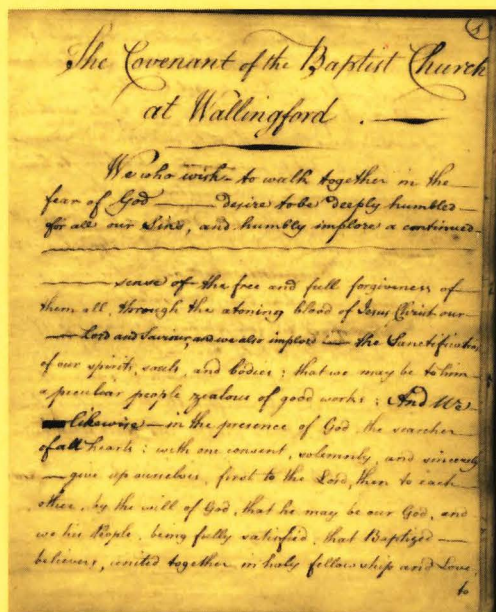 The Covenant of the Baptist Church
at Wallingford.
We who wish to walk together in the
fear of God desire to be deeply humbled
for all our Sins, and humbly implore a continued
sense of the free and full forgiveness of
them all, through the atoning blood of Jesus Christ our
Lord and Saviour, and we also implore the Sanctification
of our spirits, souls, and bodies; that we may be to him
a peculiar people zealous of good works; And We
likewise in the presence of God, the searcher
of all hearts; with one consent, solemnly, and sincerely
give up ourselves, first to the Lord, then to each
other, by the will of God, that he may be our God, and
we his People, being fully satisfied, that Baptized
believers, united together in holy fellowship and Love
to